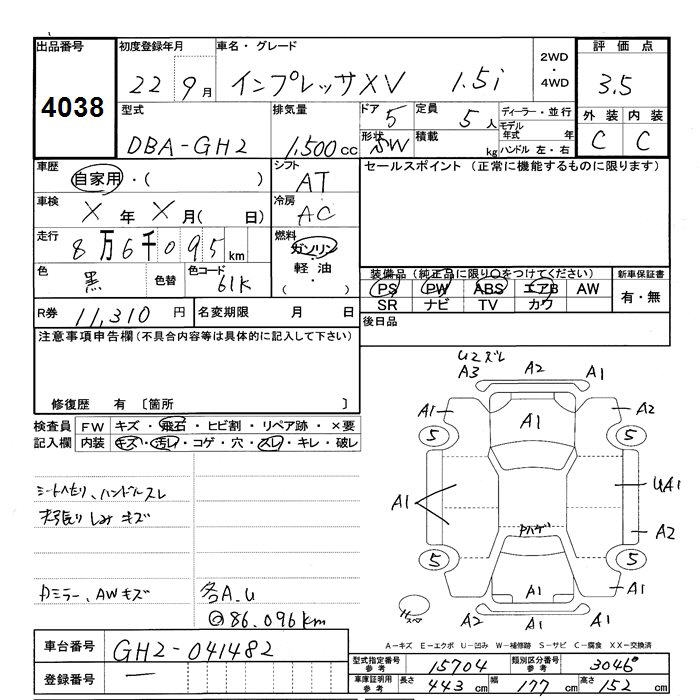 出品番号 初度登録年月 車名・グレード 2WD・4WD 評価点
4038 22 9月 インプレッサXV 1.5i 3.5
型式 排気量 ドア 5 定員 5人 ディーラー・並行 外装 内装
DBA-GH2 1,500cc 形状 SW 積載 kg モデル年式 年 ハンドル 左・右 C C
車歴 シフト セールスポイント (正常に機能するものに限ります)
自家用・( ) AT
車検 冷房
X年X月( 日) AC
走行 燃料
8万6千095km ガソリン
色 黒 色替 色コード 61K 軽油
・
( )
装備品(純正品に限り○をつけてください) 新車保証書
PS PW ABS エアB AW 有・無
SR ナビ TV カワ
R券 11,310円 名変期限 月 日 後日品
注意事項申告欄(不具合内容等は具体的に記入して下さい)
修復歴 有 〔箇所 〕
検査員 FW キズ・飛石・ヒビ割・リペア跡・×要
記入欄 内装 キズ・汚レ・コゲ・穴・スレ・キレ・破レ
シートヘタリ、ハンドルスレ
天張りしみキズ
Dミラー、AWキズ 各A.U
◎86.096km
U2ズレ
A3 A2 A1
A1 A1 A2
5 5
A1 UA1
Pハゲ A2
5 5
A1 A1
A2 A1
A−キズ E−エクボ U−凹み W−補修跡 S−サビ C−腐食 XX−交換済
車台番号 GH2-041482
登録番号 —
型式指定番号 参考 15704 類別区分番号 参考 3046
車庫証明用 参考 長さ 443cm 幅 177cm 高さ 152cm